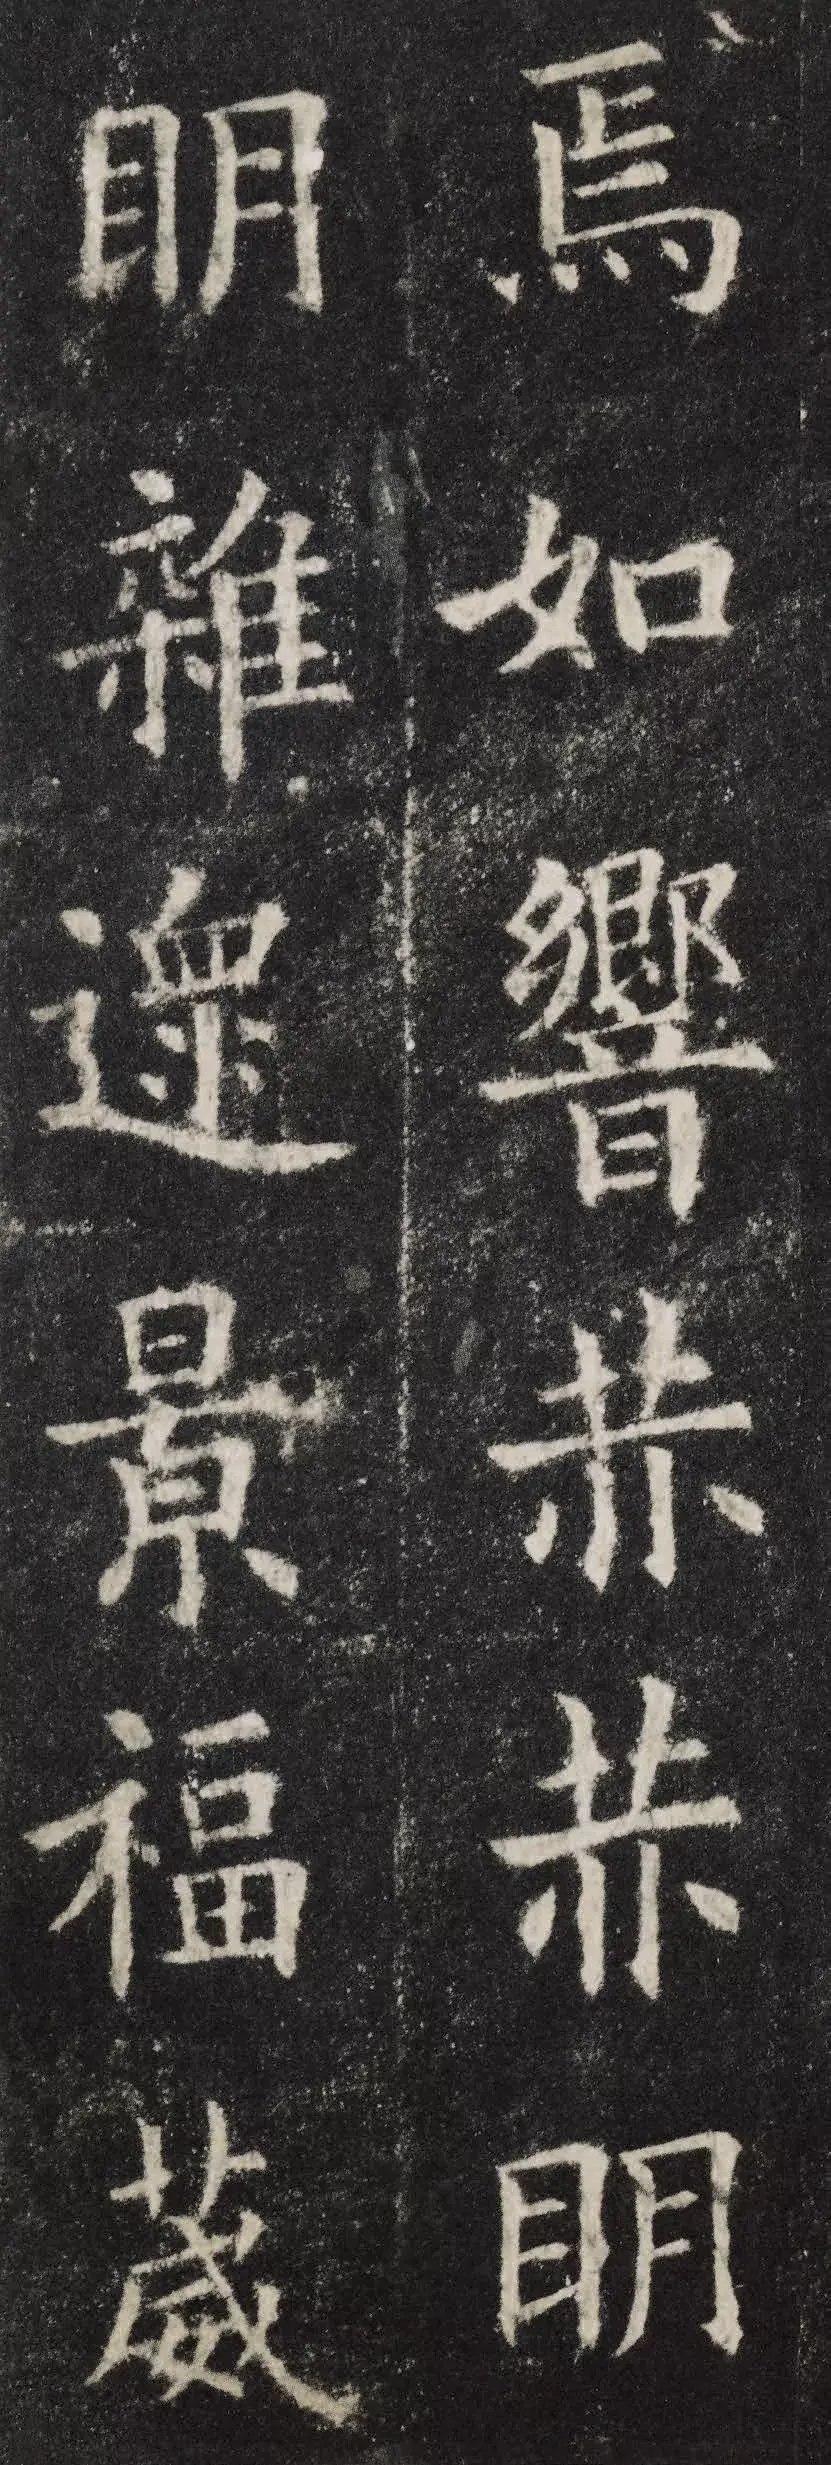 焉如響赫赫眀
眀雜遝景福葳